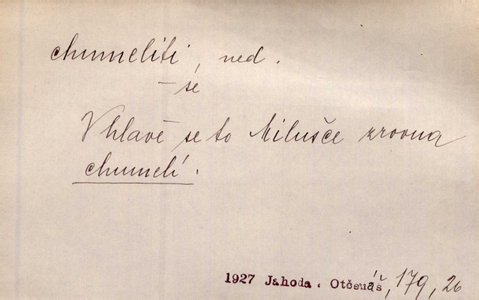 chumeliti, ned.
– se
V hlavě se to Milušce zrovna
chumelí.
1927 Jahoda. Otčenáš, 179, 26